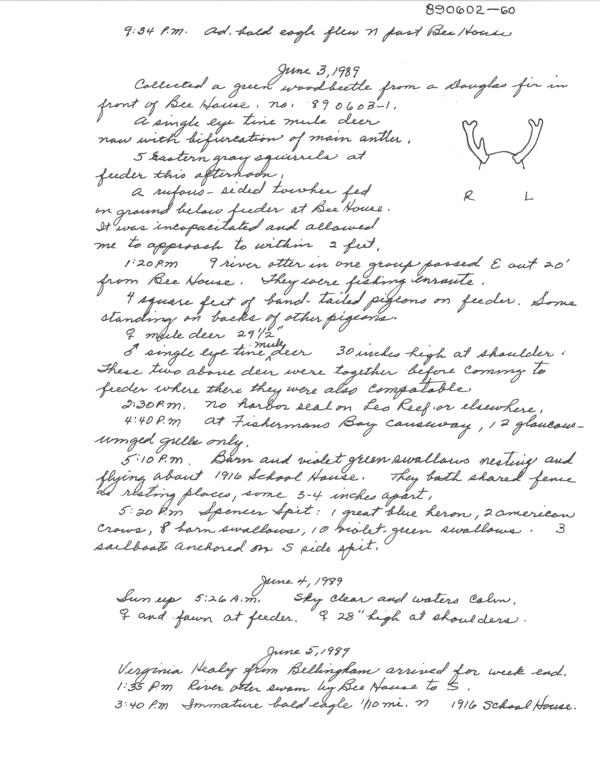 890602-60
9:34 P.M. Ad. bald eagle flew N past Bee House
June 3, 1989
Collected a green woodbeetle from a Douglas fir in
front of Bee House. no. 890603-1.
A single eye tine mule deer
now with bifurcation of main antler.
5 Eastern gray squirrels at
feeder this afternoon.
A rufous-sided towhee fed
on ground below feeder at Bee House.
It was incapacitated and allowed
me to approach to within 2 feet.
R L
1:20 PM 9 river otter in one group passed E out 20'
from Bee House. They were fishing enroute.
4 square feet of band-tailed pigeons on feeder. Some
standing on backs of other pigeons.
♀ mule deer 29 1/2"
♂ single eye tine mule deer 30 inches high at shoulder.
These two above deer were together before coming to
feeder where there they were also compatable.
2:30 P.M. No harbor seal on Leo Reef or elsewhere.
4:40 P.M. At Fishermans Bay causeway, 12 glaucous-
winged gulls only.
5:10 P.M. Barn and violet green swallows nesting and
flying about 1916 School House. They both shared fence
as resting places, some 3-4 inches apart.
5:20 P.M. Spencer Spit: 1 great blue heron, 2 american
crows, 8 barn swallows, 10 violet-green swallows. 3
sailboats anchored on S side spit.
June 4, 1989
Sun up 5:26 A.M. Sky clear and waters calm.
♀ and fawn at feeder. ♀ 28" high at shoulders.
June 5, 1989
Virginia Healy from Bellingham arrived for week end.
1:35 PM River otter swam by Bee House to S.
3:40 P.M Immature bald eagle 1/10 mi. N 1916 School House.